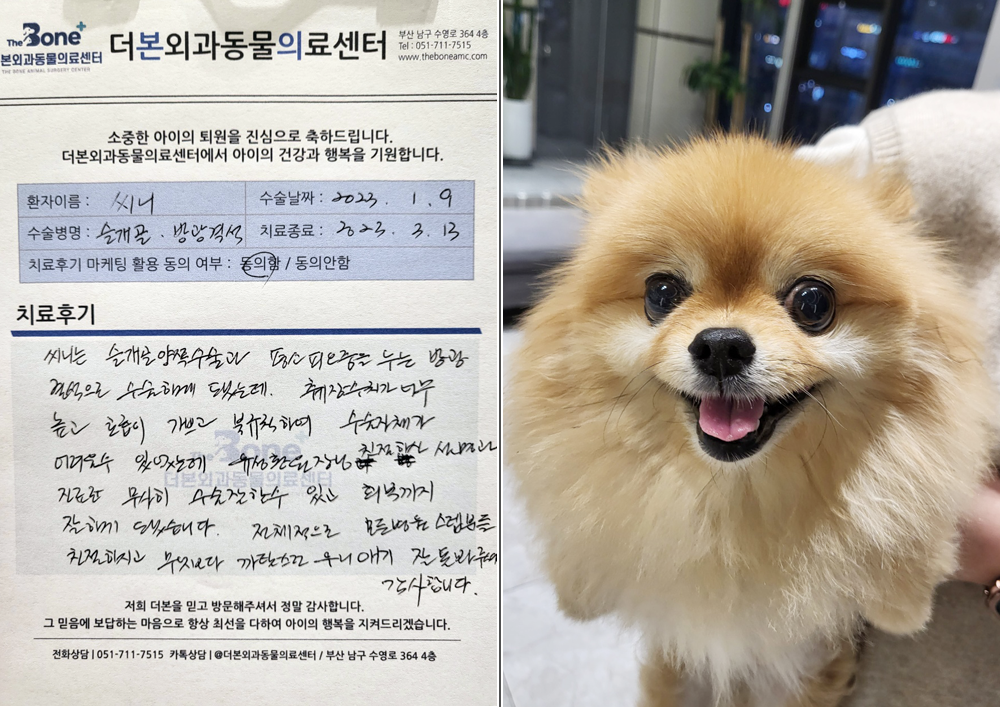 The Bone+
더본외과동물의료센터
THE BONE ANIMAL SURGERY CENTER
더본외과동물의료센터
부산 남구 수영로 364 4층
Tel : 051-711-7515
www.theboneamc.com
소중한 아이의 퇴원을 진심으로 축하드립니다.
더본외과동물의료센터에서 아이의 건강과 행복을 기원합니다.
환자이름 : 씨니
수술날짜 : 2023. 1. 9
수술병명 : 슬개골 . 방광결석
치료종료 : 2023. 3. 13
치료후기 마케팅 활용 동의 여부 : 동의함 / 동의안함
치료후기
씨니는 슬개골양쪽수술과 평소 피오줌을 누는 방광
결석으로 수술하게 됐는데. 췌장수치가 너무
높고 호흡이 가쁘고 복규칙하여 수술자체가
어려울수 있었는데 유성환원장님 친절하신 설명과
진료로 무사히 수술잘할수 있고 회복까지
잘하게 됐습니다. 전체적으로 모든병원 스텝분들
친절하시고 무엇보다 까탈스런 우리애기 잘 돌봐주셔
감사합니다.
The Bone+
더본외과동물의료센터
저희 더본을 믿고 방문해주셔서 정말 감사합니다.
그 믿음에 보답하는 마음으로 항상 최선을 다하여 아이의 행복을 지켜드리겠습니다.
전화상담 | 051-711-7515 카톡상담 | @더본외과동물의료센터 / 부산 남구 수영로 364 4층